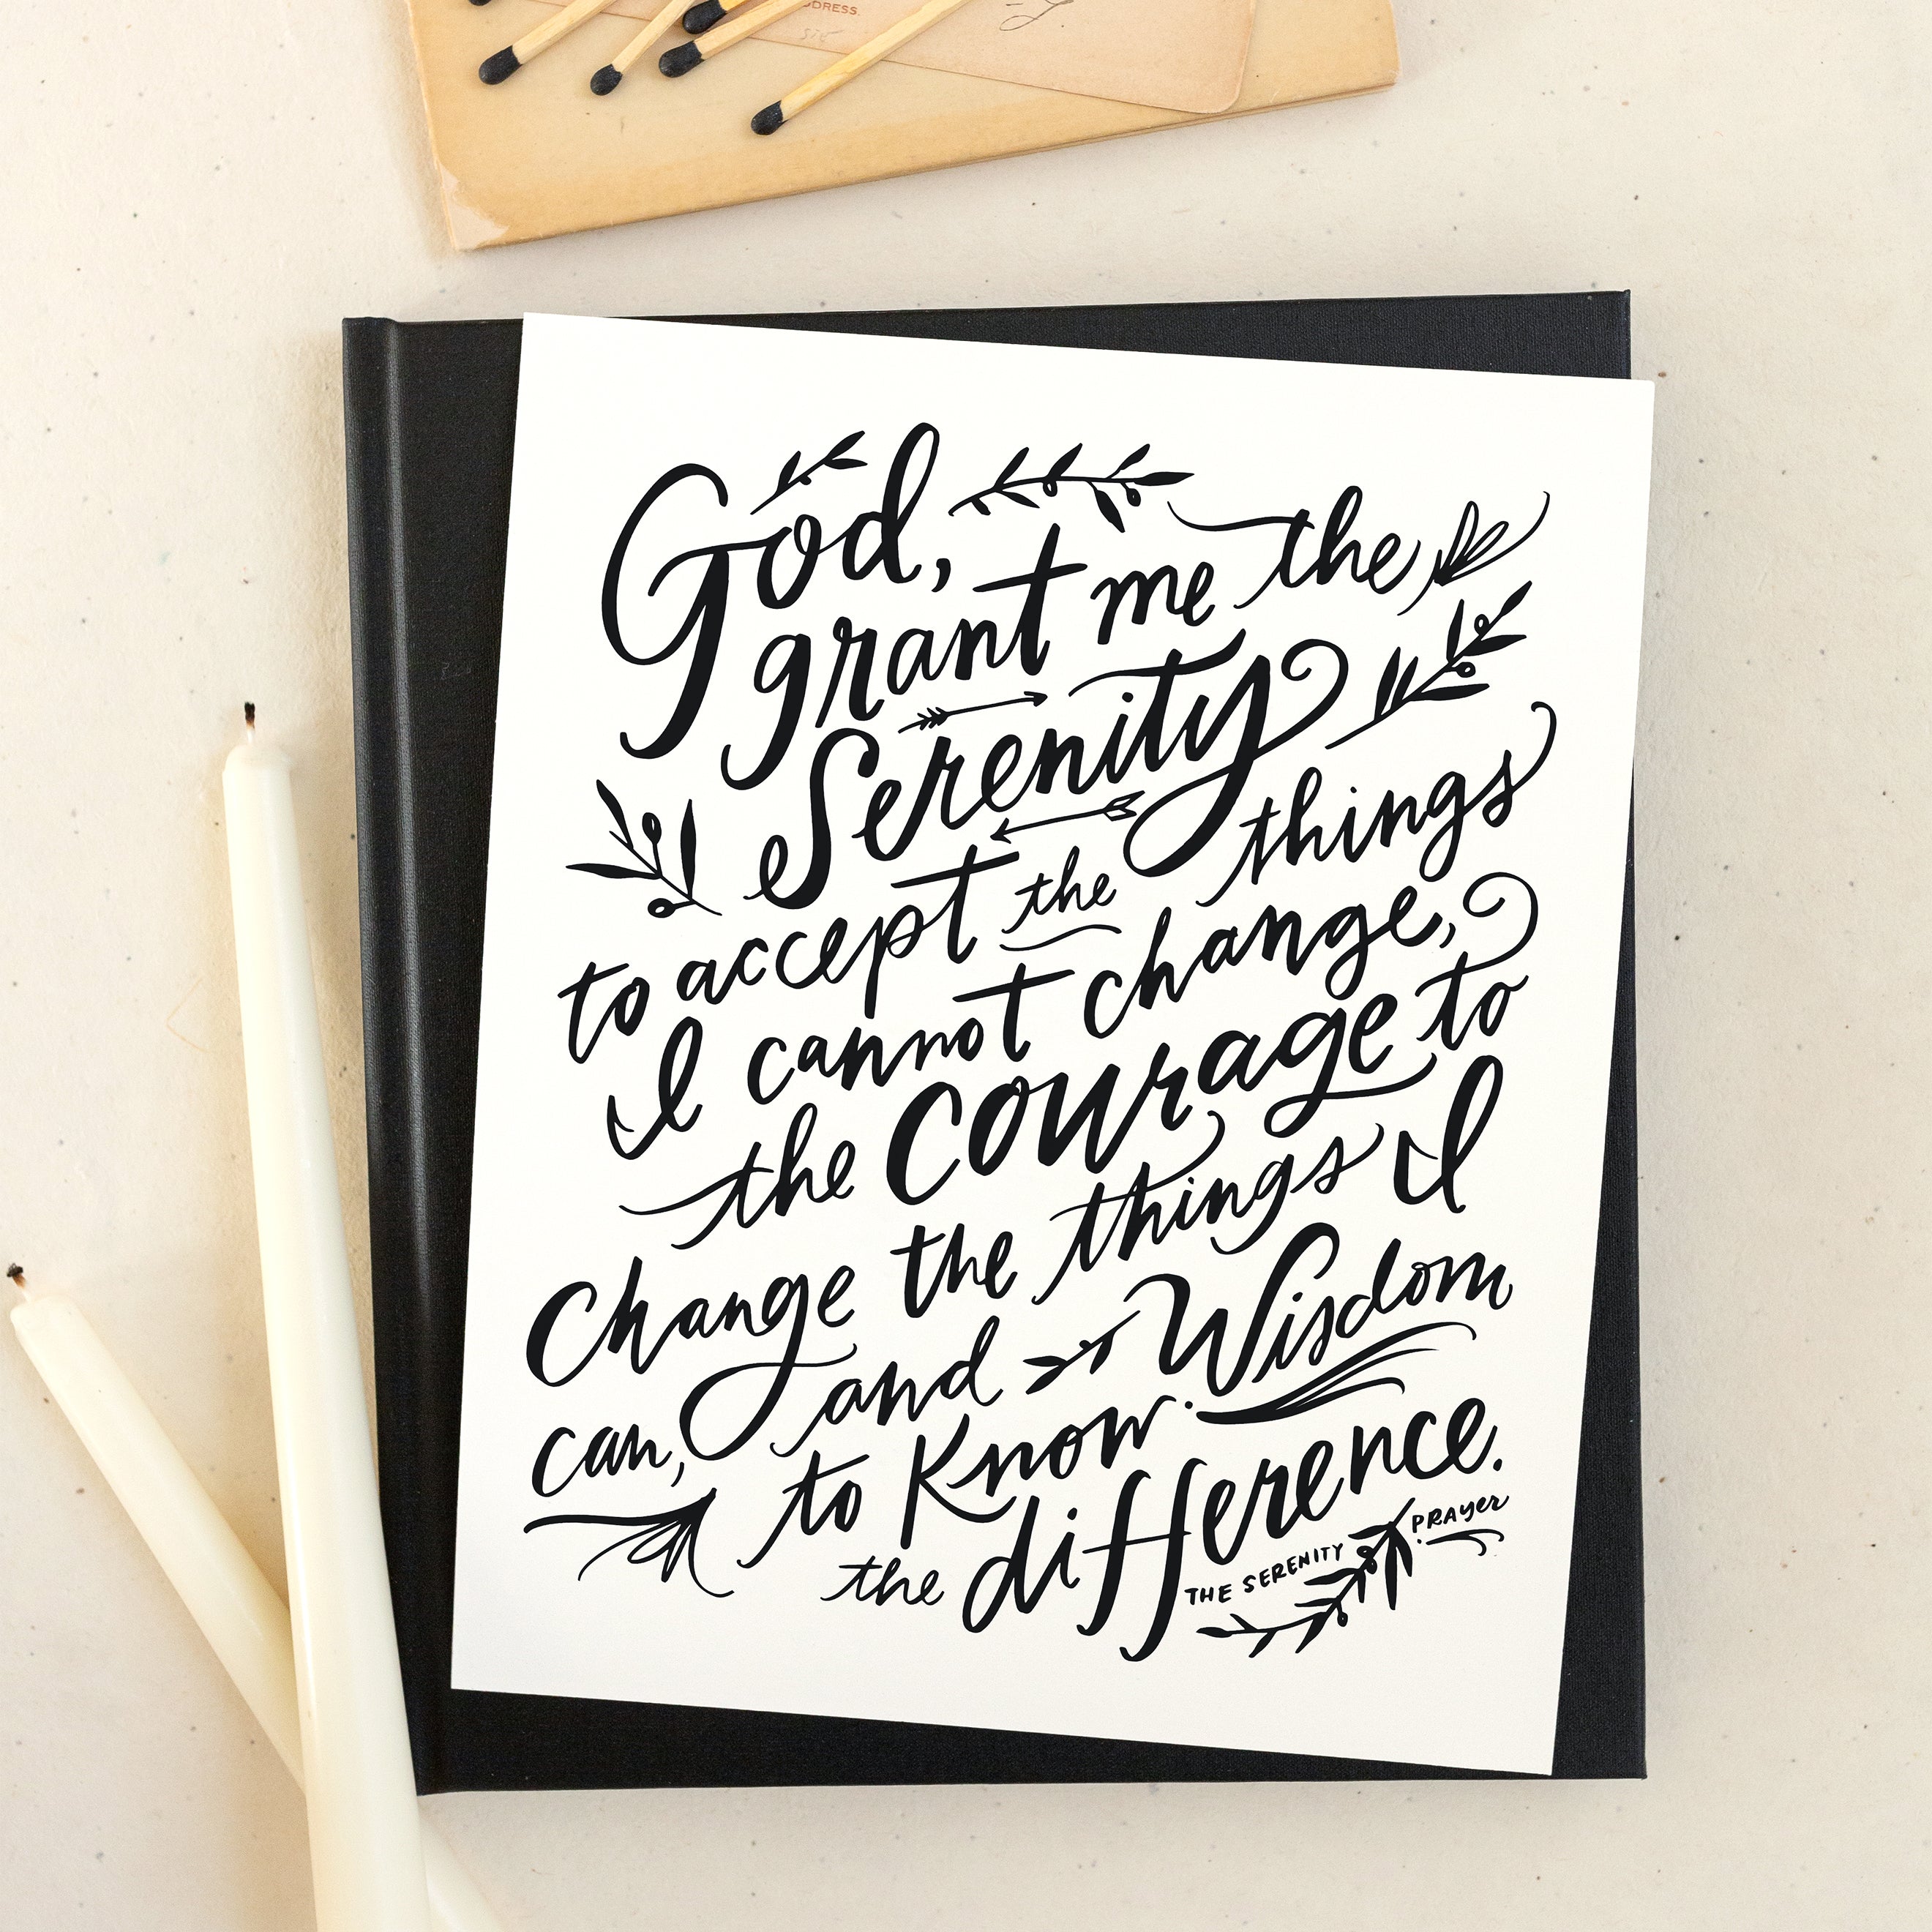 DDRESS.
God,
grant me the
Serenity
to accept the things
I cannot change,
the courage to
Change the things I
can, and Wisdom
to Know
the difference.
THE SERENITY PRAYER